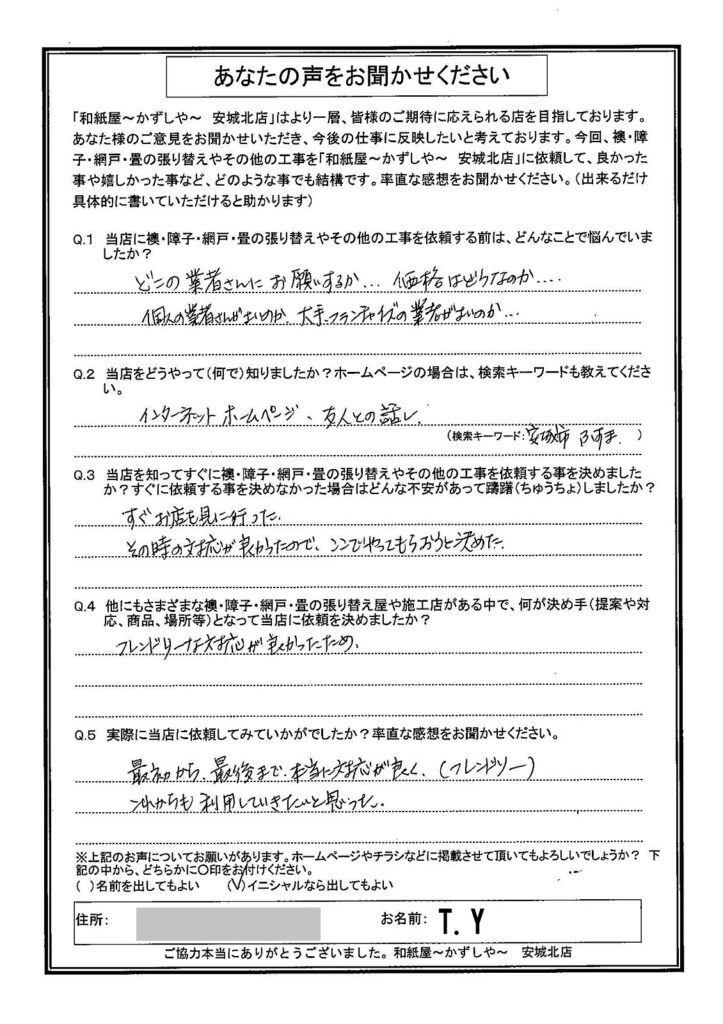 あなたの声をお聞かせください
「和紙屋～かずしや～　安城北店」はより一層、皆様のご期待に応えられる店を目指しております。
あなた様のご意見をお聞かせいただき、今後の仕事に反映したいと考えております。今回、襖・障
子・網戸・畳の張り替えやその他の工事を「和紙屋～かずしや～　安城北店」に依頼して、良かった
事や嬉しかった事など、どのような事でも結構です。率直な感想をお聞かせください。（出来るだけ
具体的に書いていただけると助かります）
Q.1　当店に襖・障子・網戸・畳の張り替えやその他の工事を依頼する前は、どんなことで悩んでいま
したか？
どこの業者さんにお願いするか… 価格はどうなのか‥‥
個人の業者さんがよいのか、大手、フランチャイズの業者がよいのか…
Q.2　当店をどうやって（何で）知りましたか？ホームページの場合は、検索キーワードも教えてくださ
い。
インターネット ホームページ、友人との話し
（検索キーワード：安城市 ふすま　）
Q.3　当店を知ってすぐに襖・障子・網戸・畳の張り替えやその他の工事を依頼する事を決めました
か？すぐに依頼する事を決めなかった場合はどんな不安があって躊躇（ちゅうちょ）しましたか？
すぐお店を見に行った。
その時の対応が良かったので、ココでやってもらおうと決めた。
Q.4　他にもさまざまな襖・障子・網戸・畳の張り替え屋や施工店がある中で、何が決め手（提案や対
応、商品、場所等）となって当店に依頼を決めましたか？
フレンドリーな対応が良かったため。
Q.5　実際に当店に依頼してみていかがでしたか？率直な感想をお聞かせください。
最初から、最後まで、本当に対応が良く、（フレンドリー）
これからも利用していきたいと思った。
※上記のお声についてお願いがあります。ホームページやチラシなどに掲載させて頂いてもよろしいでしょうか？　下
記の中から、どちらかに〇印をお付けください。
（　）名前を出してもよい　　（✓）イニシャルなら出してもよい
住所：　お名前：T.Y
ご協力本当にありがとうございました。和紙屋～かずしや～　安城北店